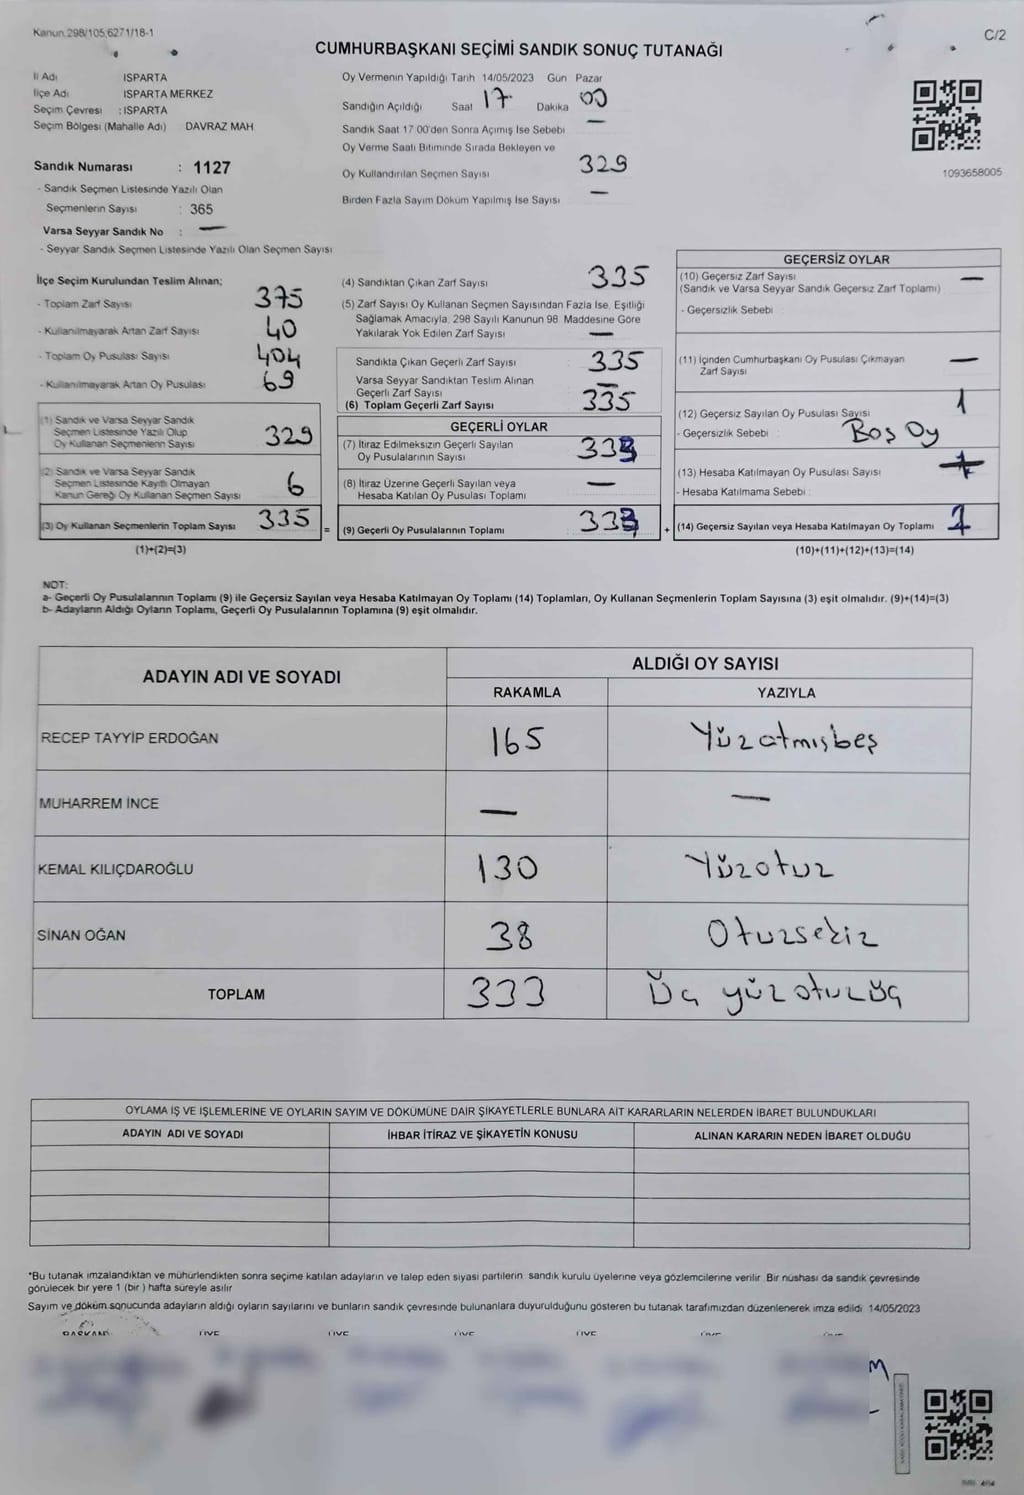 Kanun.298/105,6271/18-1
C/2
CUMHURBAŞKANI SEÇİMİ SANDIK SONUÇ TUTANAĞI
İl Adı ISPARTA
İlçe Adı ISPARTA MERKEZ
Seçim Çevresi : ISPARTA
Seçim Bölgesi (Mahalle Adı) DAVRAZ MAH
Oy Vermenin Yapıldığı Tarih 14/05/2023 Gün Pazar
Sandığın Açıldığı Saat 17 Dakika 00
Sandık Saat 17.00'den Sonra Açımış İse Sebebi —
Oy Verme Saati Bitiminde Sırada Bekleyen ve
Oy Kullandırılan Seçmen Sayısı 329
Birden Fazla Sayım Döküm Yapılmış İse Sayısı —
1093658005
Sandık Numarası : 1127
- Sandık Seçmen Listesinde Yazılı Olan
Seçmenlerin Sayısı : 365
Varsa Seyyar Sandık No : —
- Seyyar Sandık Seçmen Listesinde Yazılı Olan Seçmen Sayısı
İlçe Seçim Kurulundan Teslim Alınan;
- Toplam Zarf Sayısı 375
- Kullanılmayarak Artan Zarf Sayısı 40
- Toplam Oy Pusulası Sayısı 404
- Kullanılmayarak Artan Oy Pusulası 69
(1) Sandık ve Varsa Seyyar Sandık
Seçmen Listesinde Yazılı Olup
Oy Kullanan Seçmenlerin Sayısı 329
(2) Sandık ve Varsa Seyyar Sandık
Seçmen Listesinde Kayıtlı Olmayan
Kanun Gereği Oy Kullanan Seçmen Sayısı 6
(3) Oy Kullanan Seçmenlerin Toplam Sayısı 335
(1)+(2)=(3)
=
(4) Sandıktan Çıkan Zarf Sayısı 335
(5) Zarf Sayısı Oy Kullanan Seçmen Sayısından Fazla İse, Eşitliği
Sağlamak Amacıyla, 298 Sayılı Kanunun 98. Maddesine Göre
Yakılarak Yok Edilen Zarf Sayısı —
Sandıkta Çıkan Geçerli Zarf Sayısı 335
Varsa Seyyar Sandıktan Teslim Alınan
Geçerli Zarf Sayısı —
(6) Toplam Geçerli Zarf Sayısı 335
GEÇERLİ OYLAR
(7) İtiraz Edilmeksizin Geçerli Sayılan
Oy Pusulalarının Sayısı 333
(8) İtiraz Üzerine Geçerli Sayılan veya
Hesaba Katılan Oy Pusulası Toplamı —
(9) Geçerli Oy Pusulalarının Toplamı 333
+
GEÇERSİZ OYLAR
(10) Geçersiz Zarf Sayısı —
(Sandık ve Varsa Seyyar Sandık Geçersiz Zarf Toplamı)
- Geçersizlik Sebebi
(11) İçinden Cumhurbaşkanı Oy Pusulası Çıkmayan —
Zarf Sayısı
(12) Geçersiz Sayılan Oy Pusulası Sayısı 1
- Geçersizlik Sebebi Boş Oy
(13) Hesaba Katılmayan Oy Pusulası Sayısı
- Hesaba Katılmama Sebebi
(14) Geçersiz Sayılan veya Hesaba Katılmayan Oy Toplamı
(10)+(11)+(12)+(13)=(14)
NOT:
a- Geçerli Oy Pusulalarının Toplamı (9) ile Geçersiz Sayılan veya Hesaba Katılmayan Oy Toplamı (14) Toplamları, Oy Kullanan Seçmenlerin Toplam Sayısına (3) eşit olmalıdır. (9)+(14)=(3)
b- Adayların Aldığı Oyların Toplamı, Geçerli Oy Pusulalarının Toplamına (9) eşit olmalıdır.
ADAYIN ADI VE SOYADI
ALDIĞI OY SAYISI
RAKAMLA YAZIYLA
RECEP TAYYİP ERDOĞAN 165 Yüzatmışbeş
MUHARREM İNCE — —
KEMAL KILIÇDAROĞLU 130 Yüzotuz
SİNAN OĞAN 38 Otuzsekiz
TOPLAM 333 Üç yüz otuzüç
OYLAMA İŞ VE İŞLEMLERİNE VE OYLARIN SAYIM VE DÖKÜMÜNE DAİR ŞİKAYETLERLE BUNLARA AİT KARARLARIN NELERDEN İBARET BULUNDUKLARI
ADAYIN ADI VE SOYADI İHBAR İTİRAZ VE ŞİKAYETİN KONUSU ALINAN KARARIN NEDEN İBARET OLDUĞU
*Bu tutanak imzalandıktan ve mühürlendikten sonra seçime katılan adayların ve talep eden siyasi partilerin sandık kurulu üyelerine veya gözlemcilerine verilir. Bir nüshası da sandık çevresinde
görülecek bir yere 1 (bir ) hafta süreyle asılır
Sayım ve döküm sonucunda adayların aldığı oyların sayılarını ve bunların sandık çevresinde bulunanlara duyurulduğunu gösteren bu tutanak tarafımızdan düzenlenerek imza edildi 14/05/2023